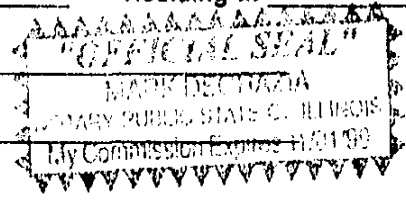 "OFFICIAL SEAL"
MARK
NOTARY PUBLIC STATE OF ILLINOIS
My Commission Expires 11/01/99